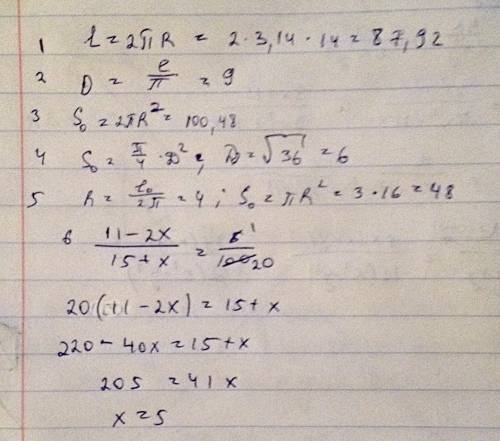 1 l = 2πR = 2 · 3,14 · 14 = 87,92
2 D = l/π = 9
3 S₀ = 2πR² = 100,48
4 S₀ = π/4 · D² ; D = √36 = 6
5 R = l₀/2π = 4 ; S₀ = πR² = 3 · 16 = 48
6 (11 - 2x)/(15 + x) = 5 1/100 20
20(11 - 2x) = 15 + x
220 - 40x = 15 + x
205 = 41x
x = 5